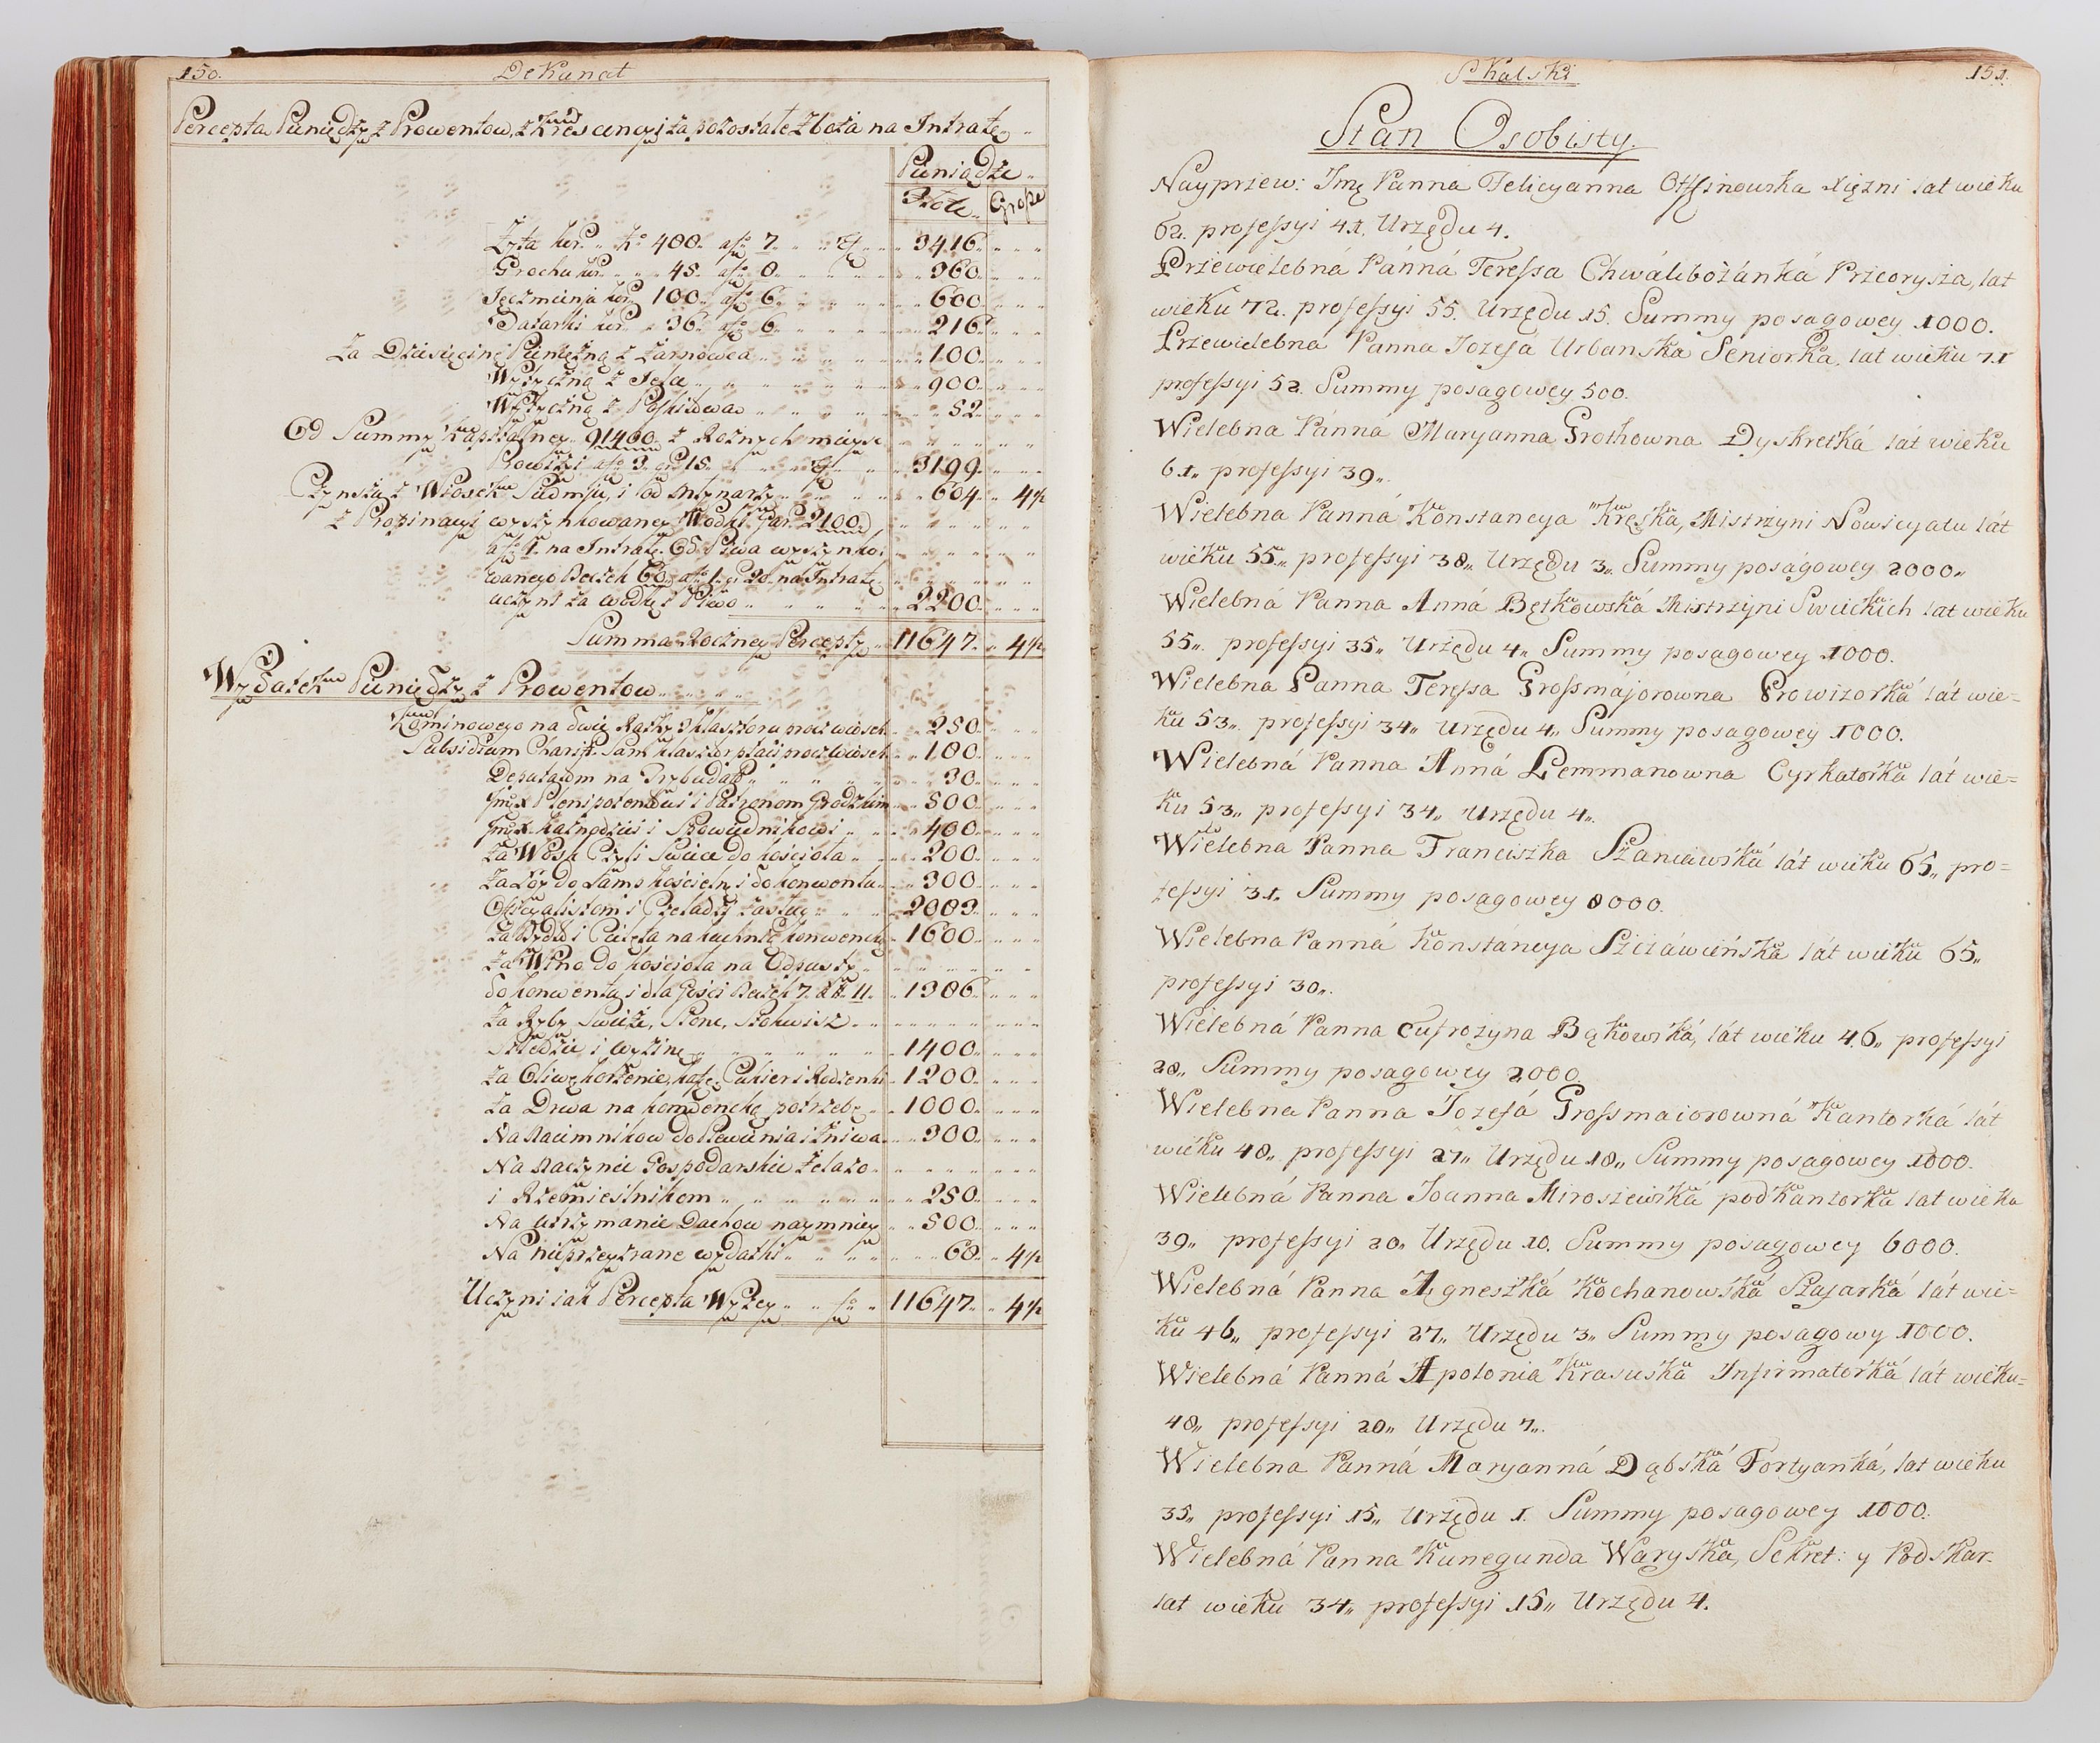 150. Dekanat
Percepta Pieniędzy z Prowentow, z Krescencyi za pozostałe zboża na Intratę
Pieniądze
Złote Grosze
Żyta kor. No 400 a fl 7 3416
Grochu kor. 45 a fl 8 360
Jęczmienia kor. 100 a fl 6 600
Tatarki kor. 36 a fl 6 216
Za Dziesięcinę Pieniężną z Żarnowca 100
Wytyczną z 900
Wytyczną z 52
Od Summy Kapitalney 91400 z Roznych mieysc
Prowizyi a fl 3 gr 15 3199
Czynszu z Wiosek i od młynarzy 604 4½
z Propinacyi wyszynkowaney Wodki Gar. 2100
a fl 1. na Intratę. Od Piwa wyszynko:
wanego Beczek 60 a fl 1 gr 20 na Intratę
uczyni za wodkę i Piwo 2200
Summa Roczney Percepty 11647 4½
Wydatek Pieniędzy z Prowentow
Kominowego na dwie Raty z klasztoru procz wiosek 250
Subsidium Charit. Sam klasztor płaci procz Wiosek 180
Deputatom na Trybunał 30
Jmci X Plenipotentowi i Patronom Grodzkim 500
Jmci X kaznodziei i Spowiednikowi 400
Za Wosk Czyli Swiece do kościoła 200
Za Łoy do Lamp kościelny i do konwentu 300
Officyalistom i Czeladzi zasług 2003
Za Bydło i Cielęta na kuchnię konwencką 1600
Za Wino do kościoła na Odpusty
do konwentu i dla Gości Beczek 7. a 11 1306
Za Ryby Swieże, Słone, Stokwisz
Szledzie i wyzinę 1400
Za Oliwę korzenie, kafę, Cukier i Rodzenki 1200
Za Drwa na konwencką potrzebę 1000
Na Naiemnikow do Plewienia i Żniwa 300
Na Naczynie Gospodarskie Żelazo
i Rzemieslnikom 250
Na utrzymanie Dachow naymniey 500
Na nieprzeyzrane wydatki 68 4½
Uczyni iak Percepta Wyżey 11647 4½
Skalski 151.
Stan Osobisty.
Nayprzew: Jmę Panna Felicyanna Ossinowska xięzni lat wieku
62. professyi 41. Urzędu 4.
Przewielebná Pánná Teressa Chwálibożánká Przeorysza, lat
wieku 72. professyi 55. Urzędu 15. Summy posagowey 1000.
Przewielebna Panna Jozefa Urbanska Seniorka, lat wieku 71
professyi 52. Summy posagowey 500.
Wielebna Pánná Maryanna Grothowna Dyskretká lát wieku
61„ professyi 39„.
Wielebna Panná Konstancya Kręska, Mistrzyni Nowicyatu lát
wieku 55„ professyi 38„ Urzędu 3„ Summy poságowey 2000„
Wielebná Panna Anná Bętkowská Mistrzyni Swieckich lat wieku
55„ professyi 35„ Urzędu 4„ Summy posągowey 1000.
Wielebna Panna Teressa Grossmájorowna Prowizorká lát wie=
ku 53„ professyi 34„ Urzędu 4„ Summy posagowey 1000.
Wielebná Panna Anná Lemmanowna Cyrkatorká lát wie=
ku 53„ professyi 34„ Urzędu 4„.
Wielebna Panna Franciszka Szaniawská lát wieku 65„ pro=
fessyi 31„ Summy posagowey 8000.
Wielebna Panná Konstáncya Szczáwieńska lát wieku 65„
professyi 30„.
Wielebná Panna Eufrozyna Bąkowská, lát wieku 46„ professyi
28„ Summy posagowey 2000
Wielebna Panna Jozefá Grossmaiorowná Kantorká lát
wieku 48„ professyi 27„ Urzędu 18„ Summy posągowey 1000.
Wielebná Panna Joanna Miroszewská podkantorka lat wieku
39„ professyi 20„ Urzędu 10. Summy posagowey 6000.
Wielebná Panna Agneszká Kochanowská Szafarká lát wie=
ku 46„ professyi 27„ Urzędu 3„ Summy posagowy 1000.
Wielebná Panná Apolonia Krasuska Infirmatorká lát wieku=
48„ professyi 20„ Urzędu 7„.
Wielebna Panná Maryanná Dąbská Fortyanká, lat wieku
35„ professyi 15„ Urzędu 1. Summy posagowey 1000.
Wielebná Panna Kunegunda Waryska, Sekret: y Podskar.
lat wieku 34„ professyi 15„ Urzędu 4.